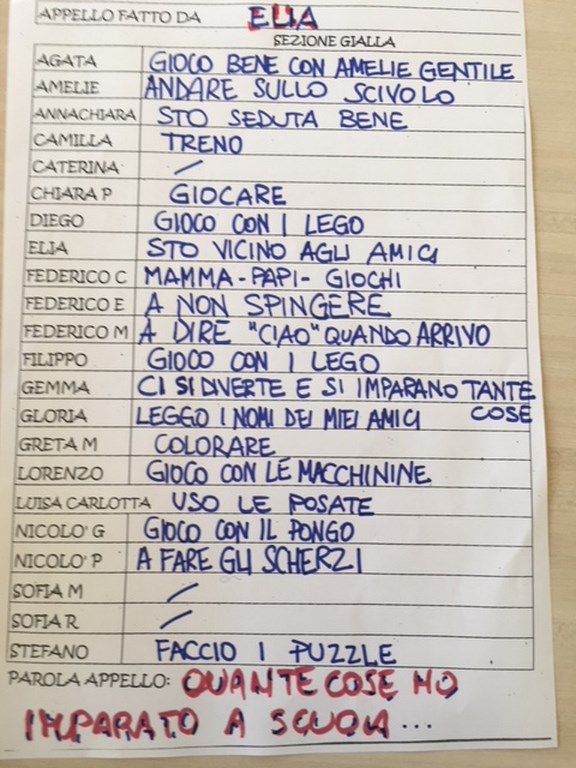 APPELLO FATTO DA ELIA
SEZIONE GIALLA
AGATA GIOCO BENE CON AMELIE GENTILE
AMELIE ANDARE SULLO SCIVOLO
ANNACHIARA STO SEDUTA BENE
CAMILLA TRENO
CATERINA /
CHIARA P GIOCARE
DIEGO GIOCO CON I LEGO
ELIA STO VICINO AGLI AMICI
FEDERICO C MAMMA - PAPI - GIOCHI
FEDERICO E A NON SPINGERE
FEDERICO M A DIRE "CIAO" QUANDO ARRIVO
FILIPPO GIOCO CON I LEGO
GEMMA CI SI DIVERTE E SI IMPARANO TANTE
COSE
GLORIA LEGGO I NOMI DEI MIEI AMICI
GRETA M COLORARE
LORENZO GIOCO CON LE MACCHININE
LUISA CARLOTTA USO LE POSATE
NICOLO' G GIOCO CON IL PONGO
NICOLO' P A FARE GLI SCHERZI
SOFIA M /
SOFIA R /
STEFANO FACCIO I PUZZLE
PAROLA APPELLO: QUANTE COSE HO
IMPARATO A SCUOLA...